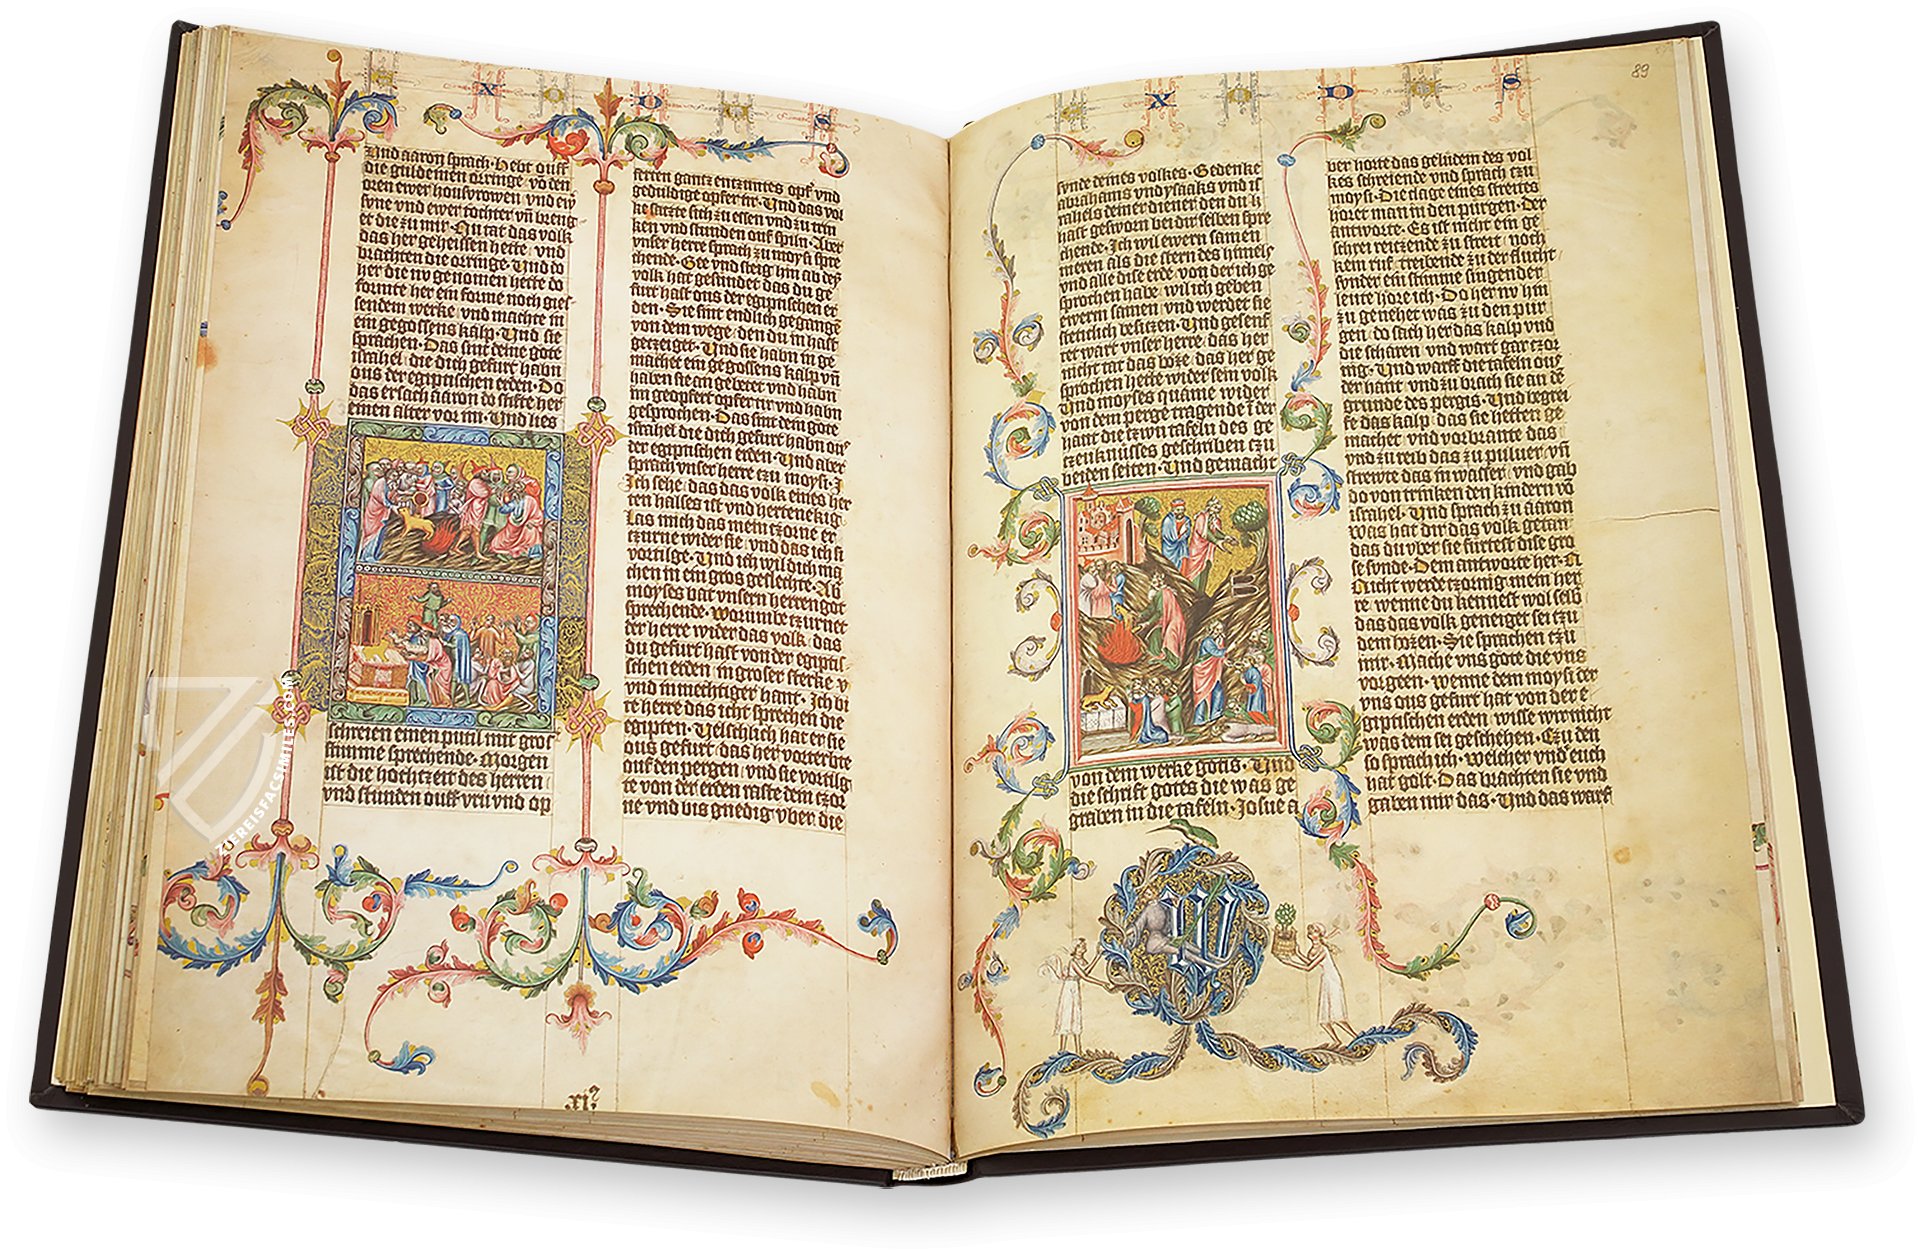 X O D S
Und aaron sprach · Hebt ouff
die guldeinen orringe võ den
oren ewer housvrowen und ew̃
syne vnd ewer tochter vñ breng
et die zu mir · Nu tat das volk
das her geheissen hette / vnd
brachten die orringe · Und do
her die nv genomen hette do
formte her ein forme noch gies
sendem werke / vnd machte in
ein gegossens kalp · Und sie
sprachen · Das sint deine gote
israhel / die dich gefurt habn
ous der egiptischen erden · Do
das ersach aaron do stifte her
einen alter vor im · Und lies
schreien einen putil mit gros
stimme sprechende · Morgen
ist die hochtzeit des herren
vnd stunden ouff vru vnd op
ferten gantz entzuntes opf vnd
geduldige opfer tir · Und das vol
ke satzte sich zu essen vnd zu trin
ken vnd stunden ouf spiln · Aber
vnser herre sprach zu moysi spre
chende · Gee vnd steig hin ab dei
volk hat gesundet das du ge
furt hast ous der egiptischen er
den · Sie sint endlich gegangẽ
von dem wege / den du in hast
getzeiget · Und sie habn in ge
machet ein gegossens kalp vñ
haben sie an gebetet vnd habn
im geopfert opfer tir vnd habn
gesprochen · Das sint dein gote
israhel die dich gefurt habn ous
der egiptischen erden · Und aber
sprach vnser herre tzu moysi · I
Ich sehe / das das volk eines her
ten halses ist vnd hertenekig
Las mich das mein tzorne er
tzurne wider sie / vnd das ich si
vortilge · Und ich wil dich ma
chen in ein gros geslechte · Ab
moyses bat vnsern herren got
sprechende · Worumbe tzurnet
der herre wider das volk / das
du gefurt hast von der egiptis
schen erden / in groser sterke v
vnd in mechtiger hant · Ich bi
te herre das icht sprechen die
egipten · Uelschlich hat er sie
ous gefurt / das her vorterbte
ouf den pergen / vnd sie vortilg
te von der erden raste dein tzor
ne vnd bis gnedig vber die
XI
X O D S
89
sunde deines volkes · Gedenke
abrahams vnd ysaaks vnd is
rahels deiner diener den du h
hast gesworn bei dir selben spre
chende · Ich wil ewern samen
meren als die stern des himels
vnd alle dise erde von der ich ge
sprochen habe / wil ich geben
ewerm samen / vnd werdet sie
stetlich besitzen · Und gesenf
tet wart vnser herre / das her
nicht tat das boze / das her ge
sprochen hette wider sein volk
Und moyses quame wider
von dem perge tragende ĩ der
hant die tzwu tafeln des ge
tzeuknusses geschriben tzu
beiden seiten · Und gemacht
von dem werke gotis · Und
die schrift gotes die was ge
graben in die tafeln · Josue a
ber horte das geludem des vol
kes schreiende vnd sprach tzu
moysi · Die clage eines streites
horet man in den purgen · Der
antworte · Es ist nicht ein ge
schrei reitzende zu streit / noch
kein ruf treibende zu der flucht /
sunder ein stimme singender
leute hore ich · Do her nv hin
zu geneher was zu den pur
gen / do sach her das kalp vnd
die scharen vnd wart gar tzor
nig · Und warff die tafeln ous
der hant / vnd zu brach sie an dẽ
grunde des pergis · Und begrei
fe das kalp / das sie hetten ge
machet / vnd vorbrante das
vnd zu reib das zu puluer / vñ
strewte das in wasser / vnd gab
do von trinken den kindern võ
israhel · Und sprach zu aaron
was hat dir das volk getan
das du vber sie furtest dise gro
se sunde · Dem antworte her · N
Nicht werde tzornig mein her
re / wenne du kennest wol selb
das volk das geneiget sei tzu
dem bozen · Sie sprachen tzu
mir · Mache vns gote die vns
vorgeen · wenne dem moysi der
vns ous gefurt hat von der e
egiptischen erden / wisse wir nicht
was dem sei geschehen · Tzu den
so sprach ich · welcher vnd euch
hat golt · Das brachten sie vnd
gaben mir das · Und das warf
W
ZIEREISFACSIMILES.COM